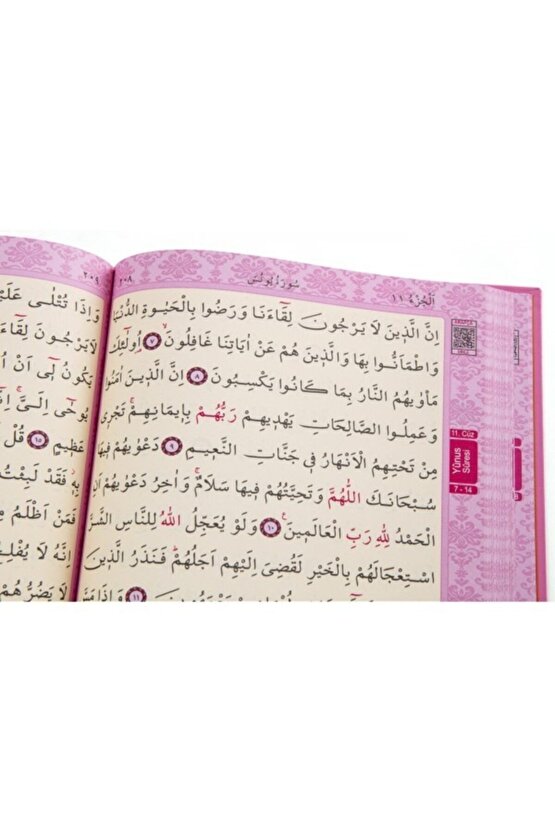 اَلْجُزْءُ ١١
سُورَةُ يُونُسَ
٢٠٨
اِنَّ الَّذٖينَ لَا يَرْجُونَ لِقَٓاءَنَا وَرَضُوا بِالْحَيٰوةِ الدُّنْيَا
وَاطْمَاَنُّوا بِهَا وَالَّذٖينَ هُمْ عَنْ اٰيَاتِنَا غَافِلُونَۙ ٧ اُو۬لٰٓئِكَ
مَاْوٰيهُمُ النَّارُ بِمَا كَانُوا يَكْسِبُونَ ٨ اِنَّ الَّذٖينَ اٰمَنُوا
وَعَمِلُوا الصَّالِحَاتِ يَهْدٖيهِمْ رَبُّهُمْ بِاٖيمَانِهِمْۚ تَجْرٖي
مِنْ تَحْتِهِمُ الْاَنْهَارُ فٖي جَنَّاتِ النَّعٖيمِ ٩ دَعْوٰيهُمْ فٖيهَا
سُبْحَانَكَ اللّٰهُمَّ وَتَحِيَّتُهُمْ فٖيهَا سَلَامٌۚ وَاٰخِرُ دَعْوٰيهُمْ اَنِ
الْحَمْدُ لِلّٰهِ رَبِّ الْعَالَمٖينَ۟ ١٠ وَلَوْ يُعَجِّلُ اللّٰهُ لِلنَّاسِ الشَّرَّ
اسْتِعْجَالَهُمْ بِالْخَيْرِ لَقُضِيَ اِلَيْهِمْ اَجَلُهُمْؕ فَنَذَرُ الَّذٖينَ
١١ وَاِذَا
11. Cüz
Yûnus
Sûresi
7 - 14
٢٠٩
وَاِذَا تُتْلٰى
لَا يَرْجُونَ
يَكُونُ لٖٓي اَنْ
يُوحٰٓى اِلَيَّۚ
عَظٖيمٍ ١٥ قُلْ
بِهٖۘ فَقَدْ لَبِثْتُ
فَمَنْ اَظْلَمُ
اِنَّهُ لَا
لَا يَضُرُّهُمْ